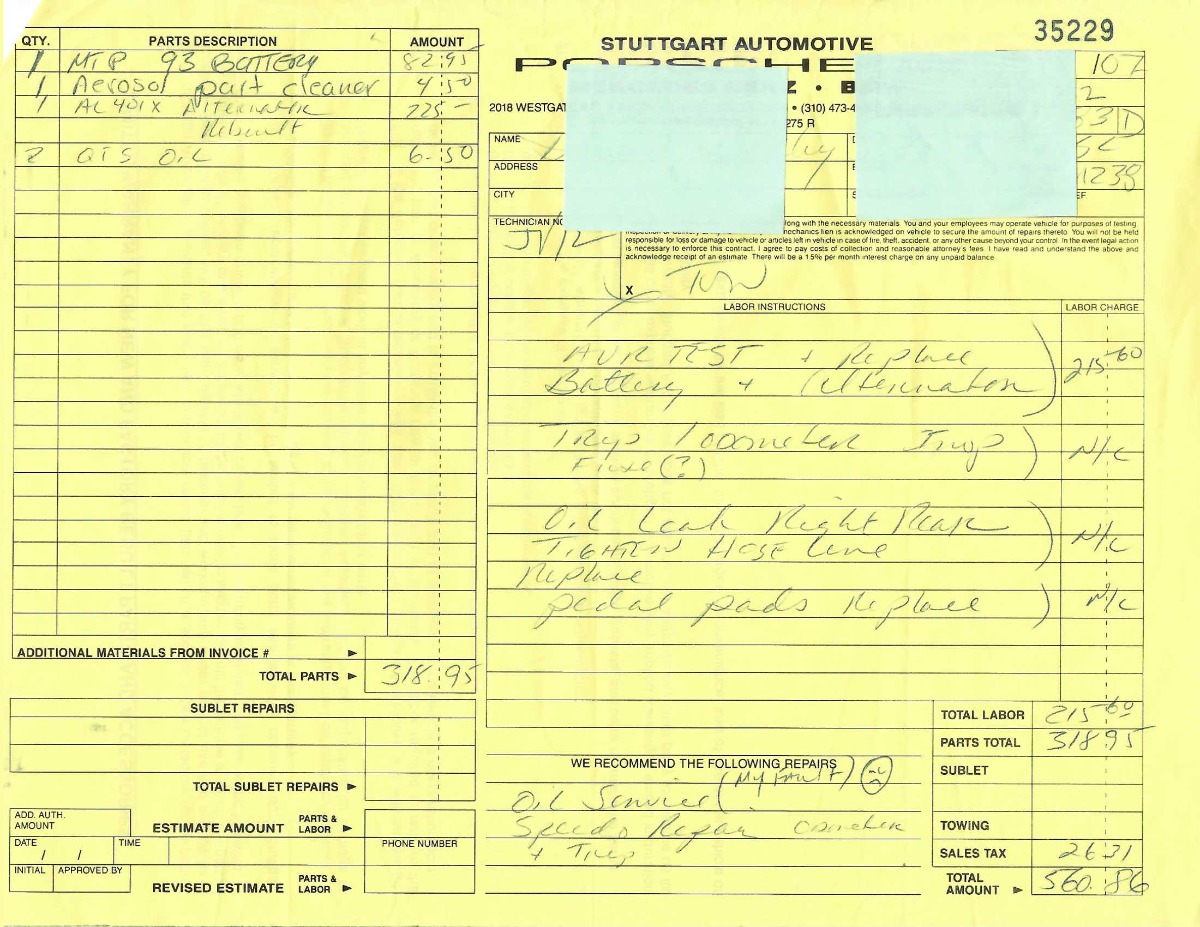 35229
QTY. PARTS DESCRIPTION AMOUNT
1 MTP 93 BATTERY 82.95
1 Aerosol part cleaner 4 50
1 AL401X Alternator 225 –
Rebuilt
2 QTS OIL 6.50
ADDITIONAL MATERIALS FROM INVOICE #
TOTAL PARTS 318.95
SUBLET REPAIRS
TOTAL SUBLET REPAIRS
ADD. AUTH. AMOUNT
ESTIMATE AMOUNT PARTS & LABOR
DATE / / TIME
PHONE NUMBER
INITIAL APPROVED BY
REVISED ESTIMATE PARTS & LABOR
STUTTGART AUTOMOTIVE
PORSCHE
107
2
Z • B
2018 WESTGAT • (310) 473-4
275 R
53 D
NAME
ADDRESS
1238
CITY
TECHNICIAN NO
long with the necessary materials. You and your employees may operate vehicle for purposes of testing,
mechanics lien is acknowledged on vehicle to secure the amount of repairs thereto. You will not be held
responsible for loss or damage to vehicle or articles left in vehicle in case of fire, theft, accident, or any other cause beyond your control. In the event legal action
is necessary to enforce this contract, I agree to pay costs of collection and reasonable attorney's fees. I have read and understand the above and
acknowledge receipt of an estimate. There will be a 1.5% per month interest charge on any unpaid balance.
X
LABOR INSTRUCTIONS LABOR CHARGE
AVR TEST + Replace
Battery + (Alternator) 215 60
Tryp / odometer Inop N/C
Fuse (?)
Oil Leak Right Rear
TIGHTEN HOSE Line N/C
Replace
pedal pads Replace N/C
WE RECOMMEND THE FOLLOWING REPAIRS
(My FAULT)
Oil Service
Speedo Repair odometer
+ Trip
TOTAL LABOR 215 60
PARTS TOTAL 318 95
SUBLET
TOWING
SALES TAX 26 31
TOTAL AMOUNT 560.86